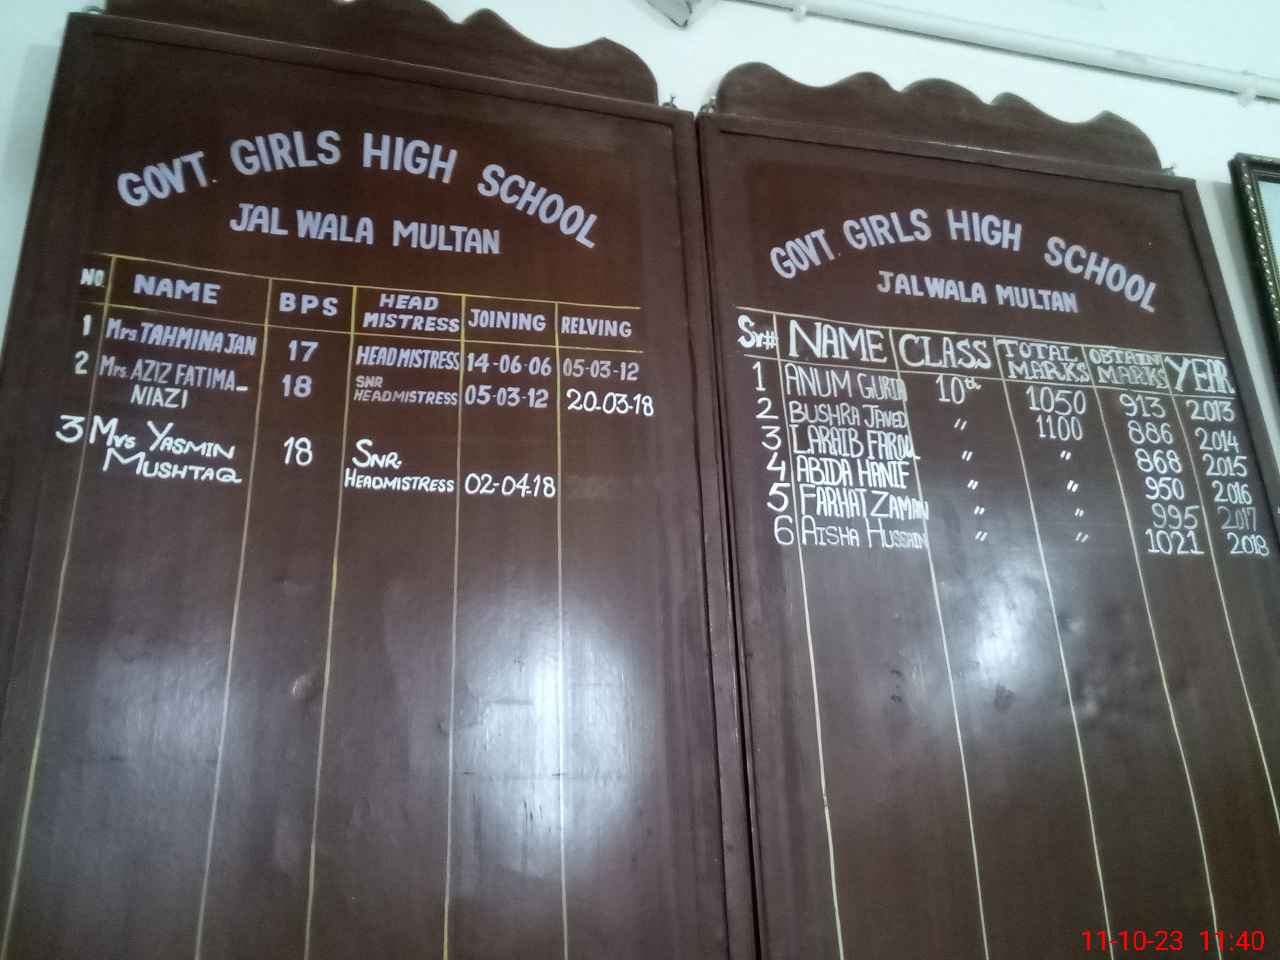 GOVT. GIRLS HIGH SCHOOL
JAL WALA MULTAN
NO. NAME BPS HEAD MISTRESS JOINING RELVING
1 Mrs. TAHMINA JAN 17 HEADMISTRESS 14-06-06 05-03-12
2 Mrs. AZIZ FATIMA NIAZI 18 SNR HEADMISTRESS 05-03-12 20-03-18
3 Mrs YASMIN MUSHTAQ 18 SNR. HEADMISTRESS 02-04-18
GOVT. GIRLS HIGH SCHOOL
JAL WALA MULTAN
Sr# NAME CLASS TOTAL MARKS OBTAIN MARKS YEAR
1 ANUM 10th 1050 913 2013
2 BUSHRA JAVED " 1100 886 2014
3 LARAIB FAROO " " 868 2015
4 ABIDA HANIF " " 950 2016
5 FARHAT ZAMAN " " 995 2017
6 AISHA HUSSAIN " " 1021 2018
11-10-23 11:40